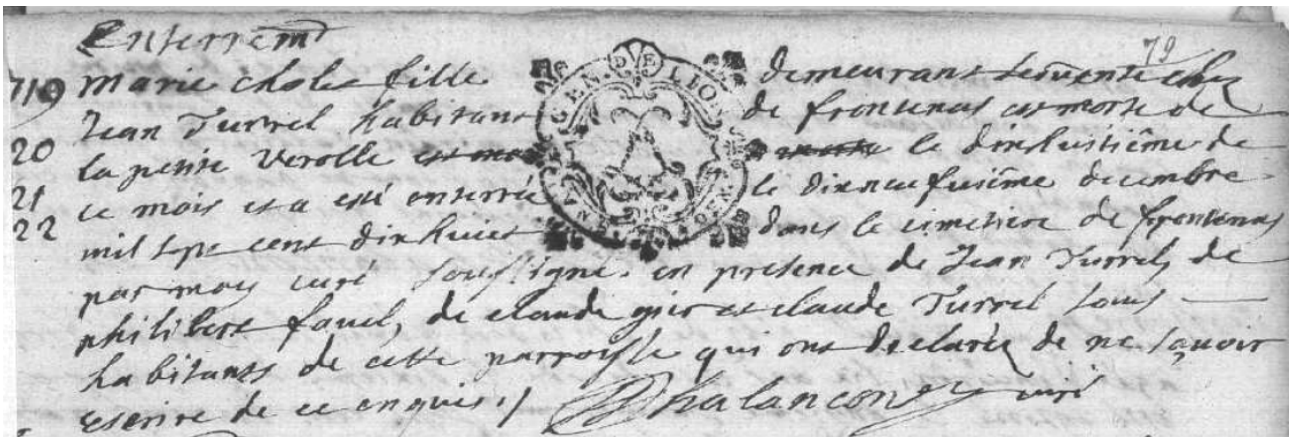 Enterremt
79
719 marie choles fille demeurant servente chez
Jean Turrel habitant de frontenas est morte de
20 la petite verolle est mo morte le dixhuitiême de
21 ce mois et a esté enterrée le dixneufuiême decembre
22 mil sept cent dixhuict dans le cimetiere de frontenas
par moy curé soussigné. en presence de Jean Turrel, de
philibert favel, de claude et claude Turrel tous
habitants de cette parroisse qui ont declarée de ne sçavoir
escrire de ce enquis ./ Chalancon curé
GEN DE LION